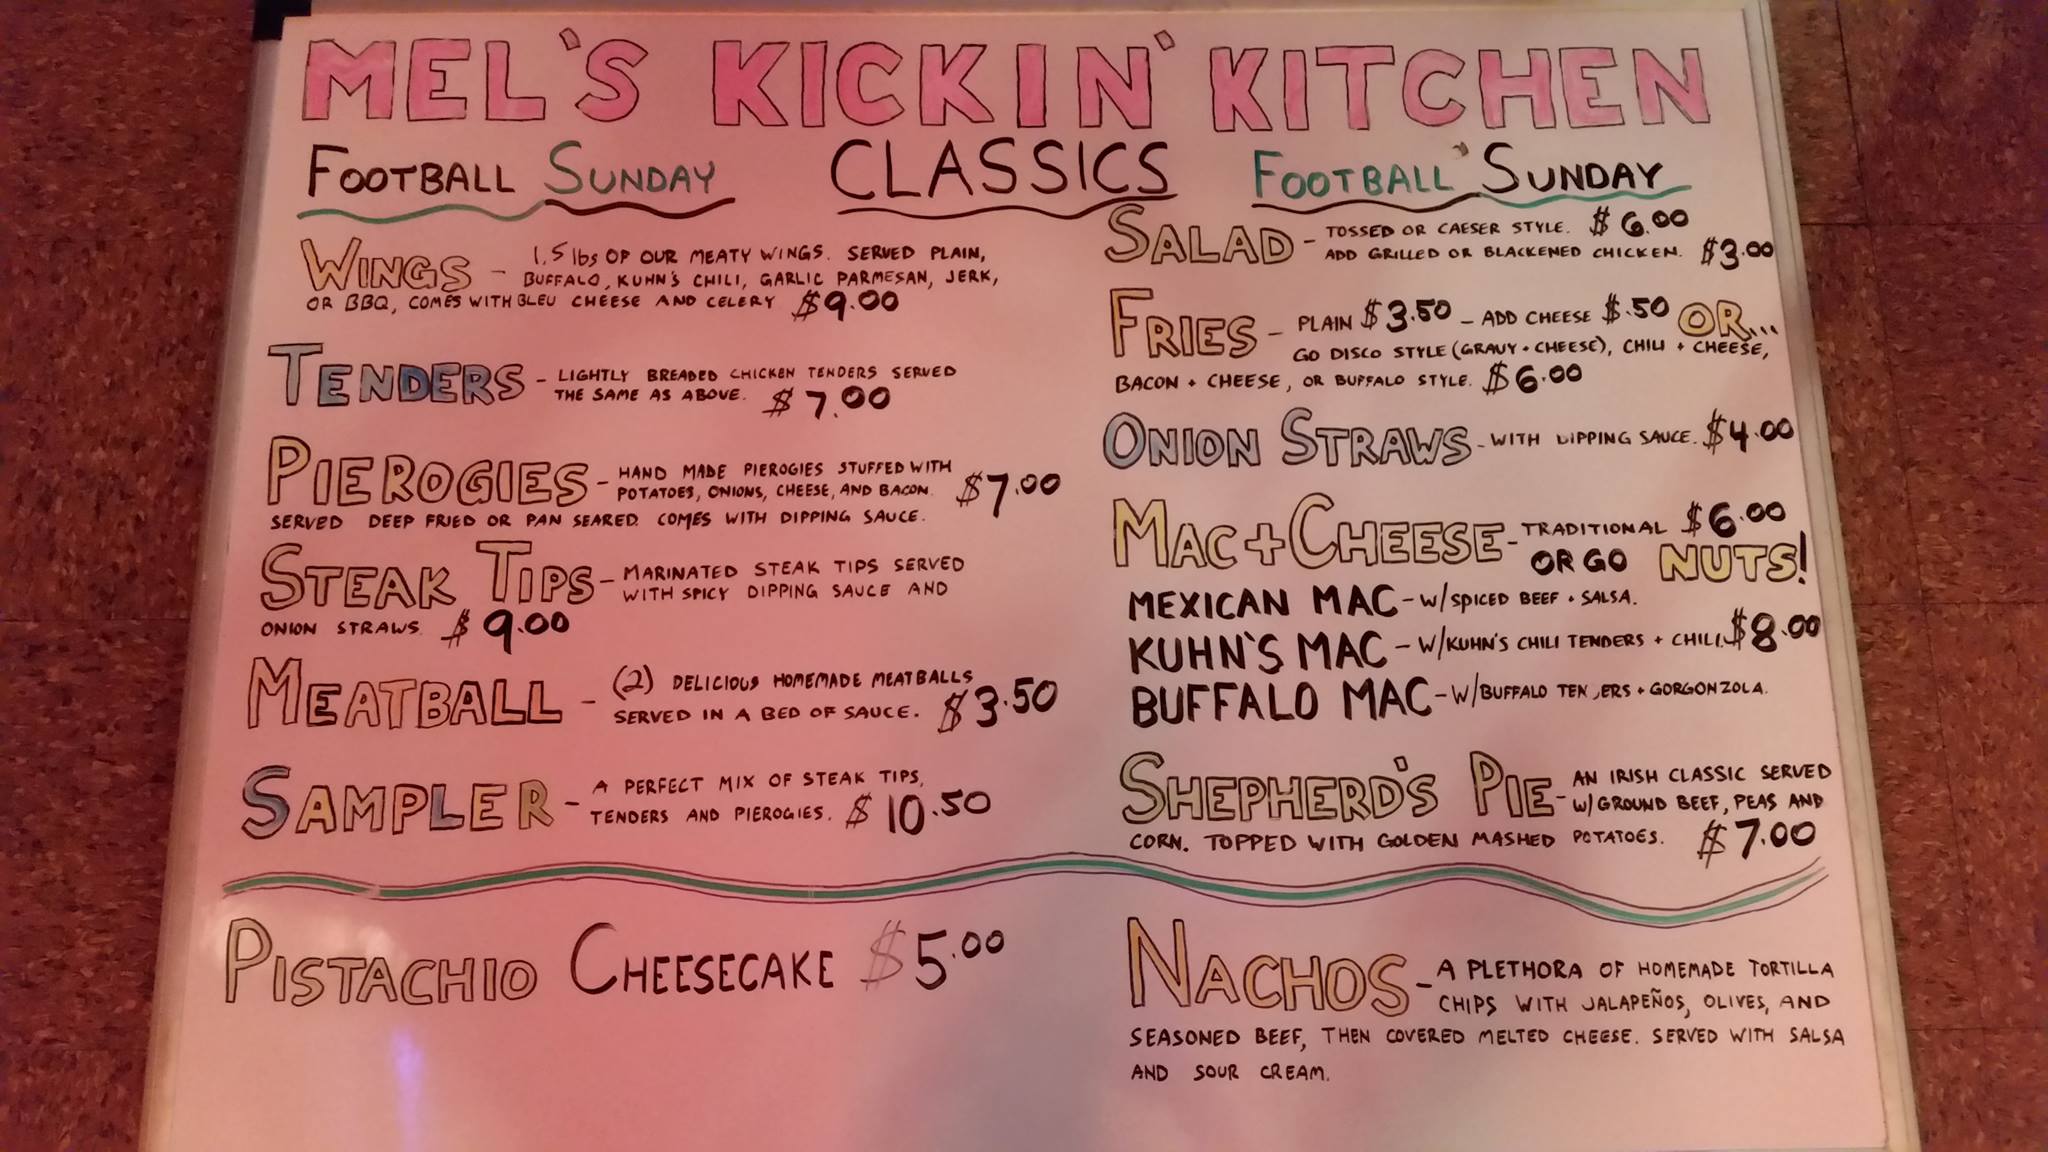 MEL'S KICKIN' KITCHEN
FOOTBALL SUNDAY CLASSICS FOOTBALL SUNDAY
WINGS - 1.5 lbs OF OUR MEATY WINGS. SERVED PLAIN,
BUFFALO, KUHN'S CHILI, GARLIC PARMESAN, JERK,
OR BBQ, COMES WITH BLEU CHEESE AND CELERY $9.00
TENDERS - LIGHTLY BREADED CHICKEN TENDERS SERVED
THE SAME AS ABOVE. $7.00
PIEROGIES - HAND MADE PIEROGIES STUFFED WITH
POTATOES, ONIONS, CHEESE, AND BACON. $7.00
SERVED DEEP FRIED OR PAN SEARED. COMES WITH DIPPING SAUCE.
STEAK TIPS - MARINATED STEAK TIPS SERVED
WITH SPICY DIPPING SAUCE AND
ONION STRAWS. $9.00
MEATBALL - (2) DELICIOUS HOMEMADE MEATBALLS
SERVED IN A BED OF SAUCE. $3.50
SAMPLER - A PERFECT MIX OF STEAK TIPS,
TENDERS AND PIEROGIES. $10.50
PISTACHIO CHEESECAKE $5.00
SALAD - TOSSED OR CAESER STYLE. $6.00
ADD GRILLED OR BLACKENED CHICKEN. $3.00
FRIES - PLAIN $3.50 - ADD CHEESE $.50 OR...
GO DISCO STYLE (GRAVY + CHEESE), CHILI + CHEESE,
BACON + CHEESE, OR BUFFALO STYLE. $6.00
ONION STRAWS - WITH DIPPING SAUCE. $4.00
MAC + CHEESE - TRADITIONAL $6.00
OR GO NUTS!
MEXICAN MAC - W/SPICED BEEF + SALSA.
KUHN'S MAC - W/KUHN'S CHILI TENDERS + CHILI. $8.00
BUFFALO MAC - W/BUFFALO TENDERS + GORGONZOLA.
SHEPHERD'S PIE - AN IRISH CLASSIC SERVED
W/GROUND BEEF, PEAS AND
CORN. TOPPED WITH GOLDEN MASHED POTATOES. $7.00
NACHOS - A PLETHORA OF HOMEMADE TORTILLA
CHIPS WITH JALAPEÑOS, OLIVES, AND
SEASONED BEEF, THEN COVERED MELTED CHEESE. SERVED WITH SALSA
AND SOUR CREAM.